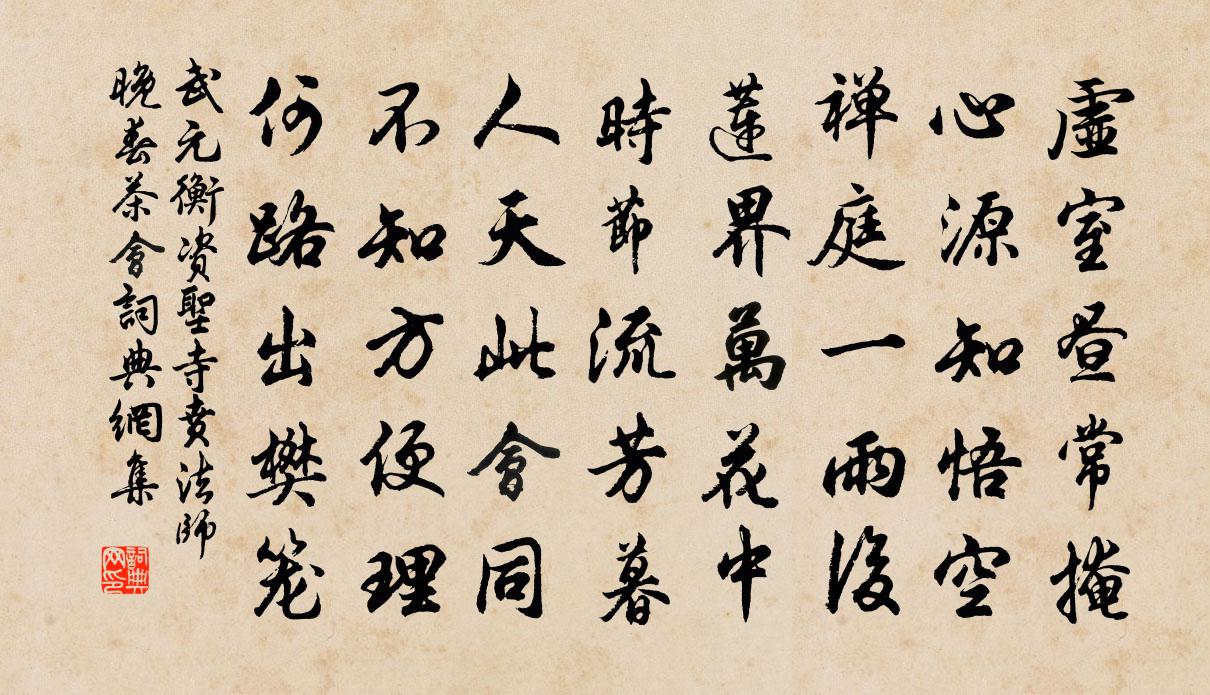 虛室昼常掩
心源知悟空
禅庭一雨後
蓮界萬花中
時節流芳暮
人天此會同
不知方便理
何路出樊笼
武元衡资聖寺贲法師
晚春茶會詞典網集
詞典
网印